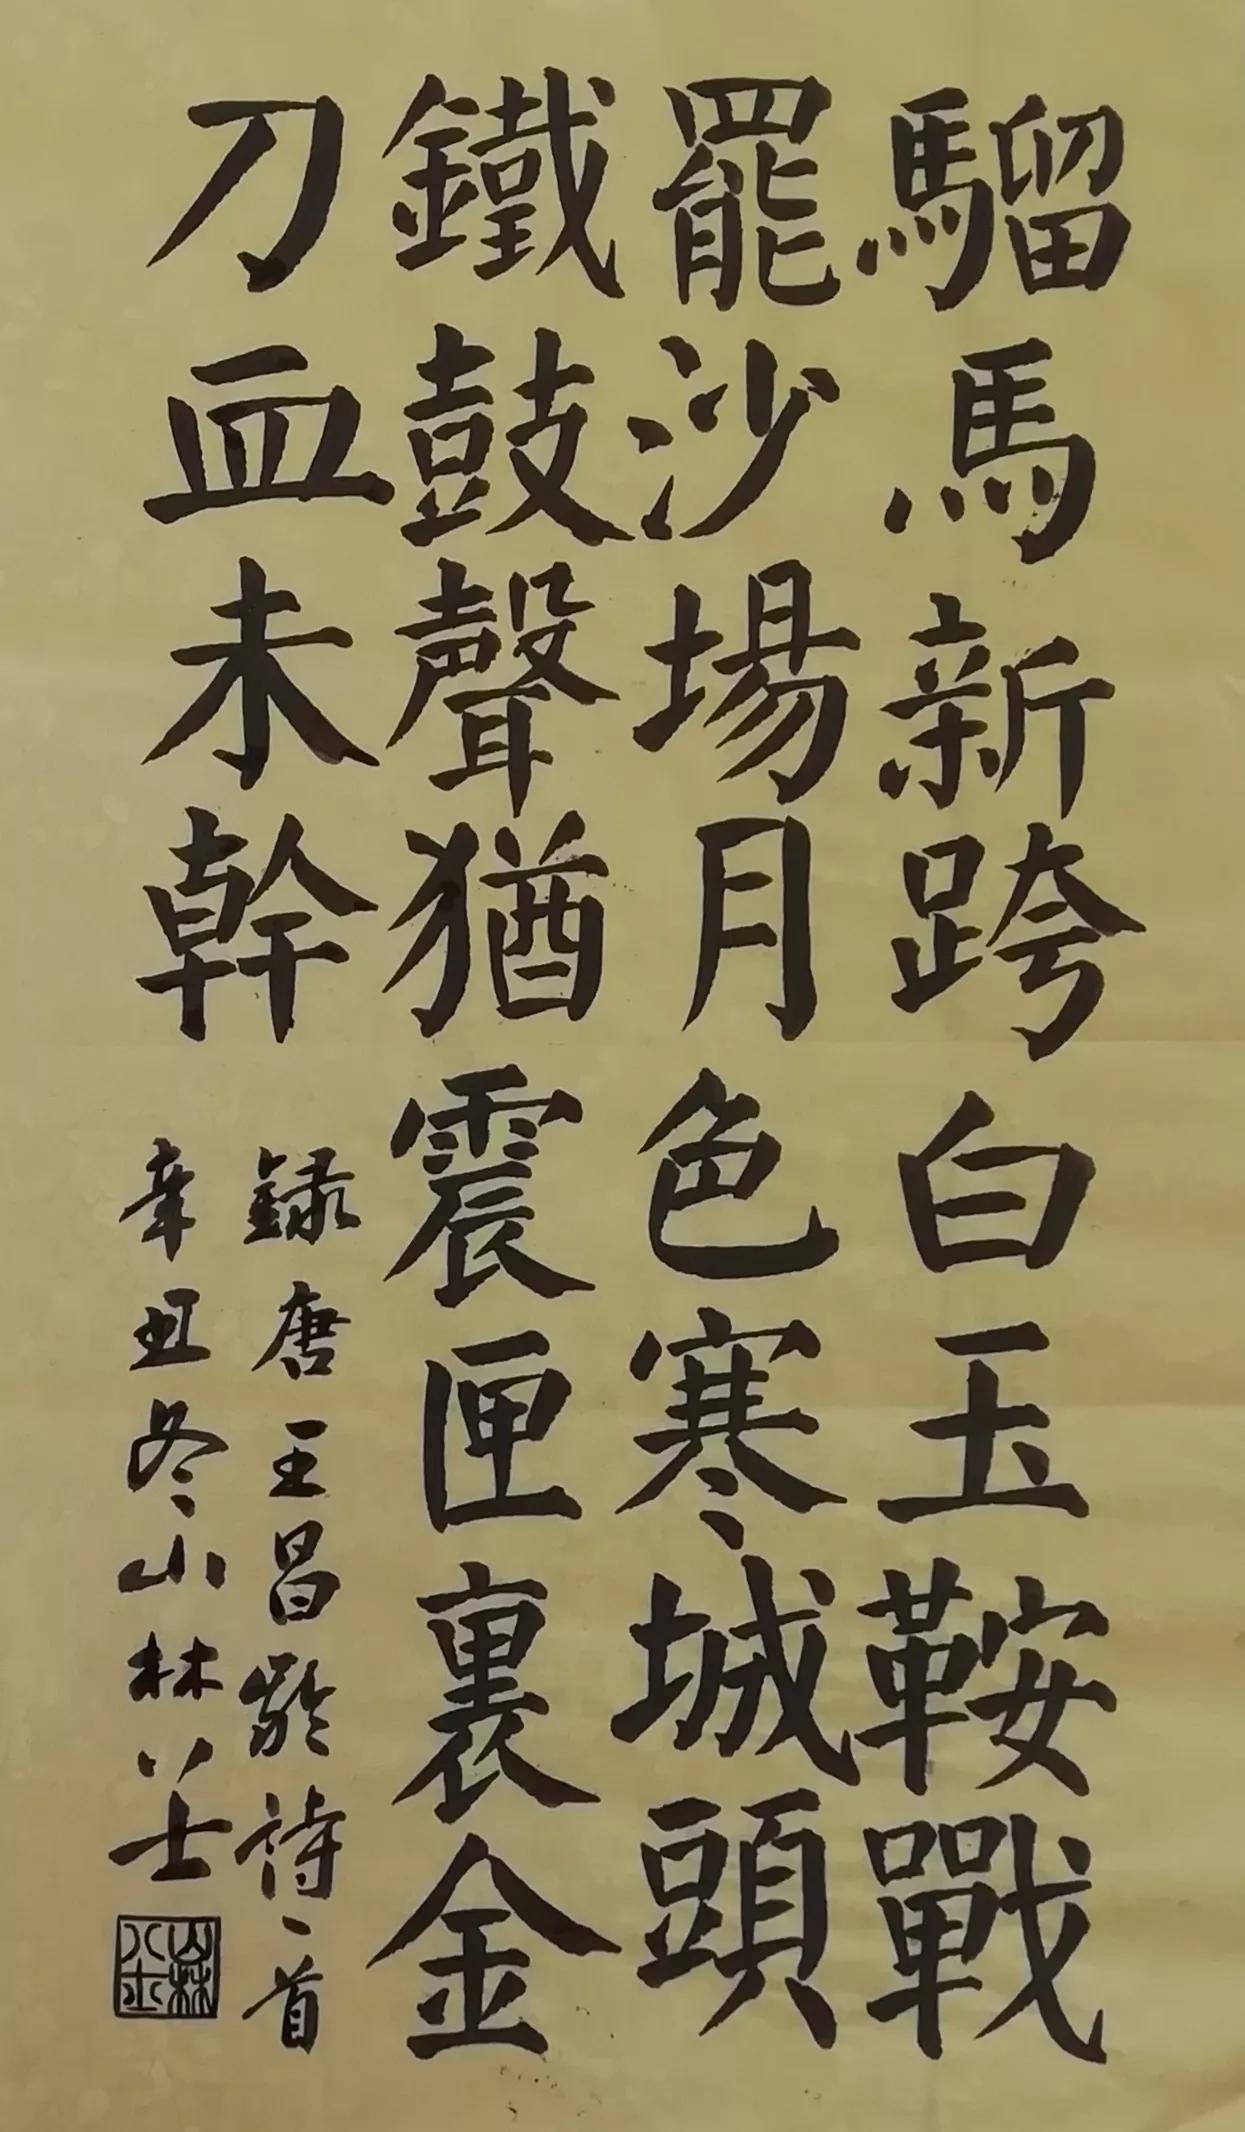 騮馬新跨白玉鞍戰
罷沙場月色寒城頭
鐵鼓聲猶震匣裏金
刀血未幹
録唐王昌齡詩一首
辛丑冬山林八士
山林八士